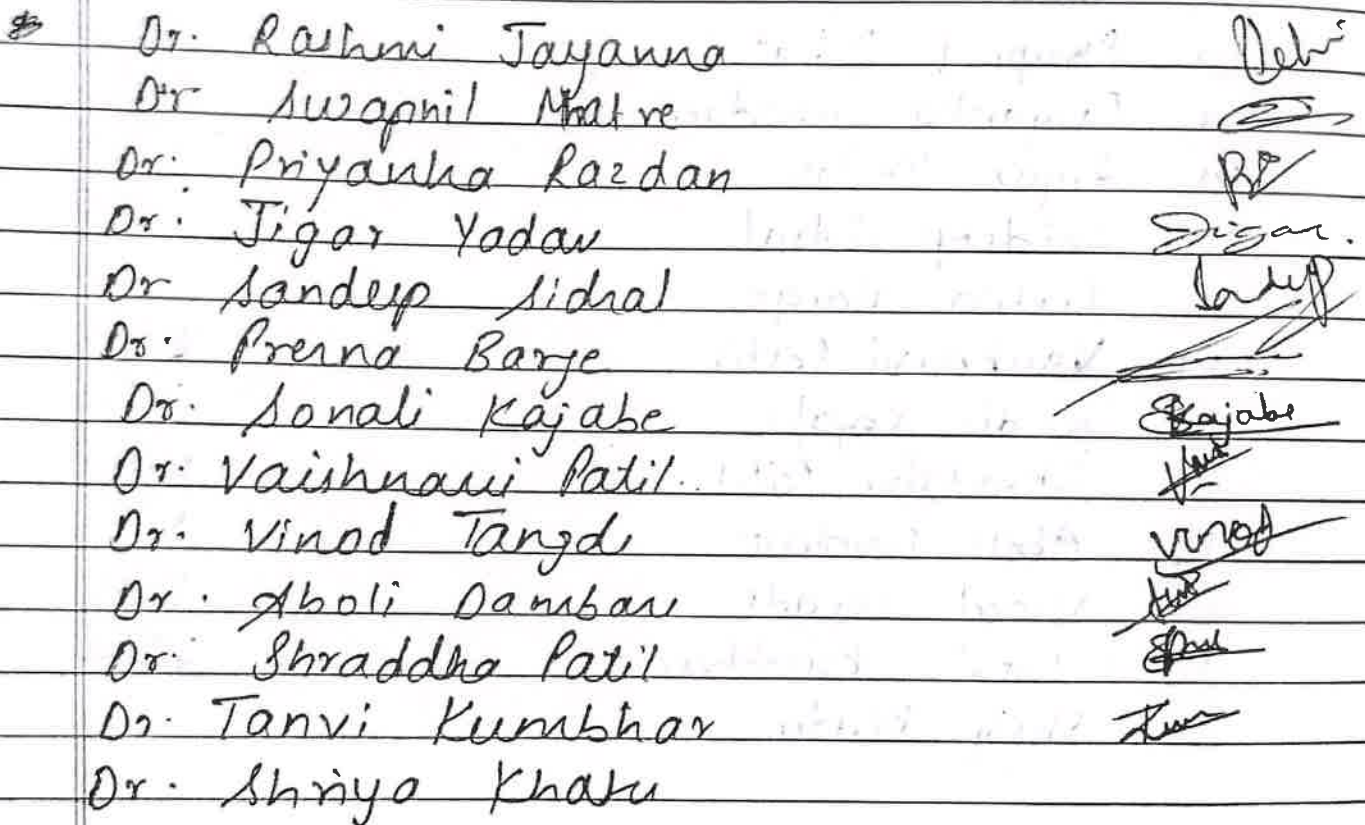 Dr. Rashmi Jayanna
Dr Swapnil Mhatre
Dr. Priyanka Razdan RP
Dr. Jigar Yadav Jigar.
Dr Sandeep Sidral Sandeep
Dr. Prerna Barge
Dr. Sonali Kajabe SKajabe
Dr. Vaishnavi Patil.
Dr. Vinod Tangdi Vinod
Dr. Aboli Dambare
Dr. Shraddha Patil
Dr. Tanvi Kumbhar
Dr. Shriya Khatu